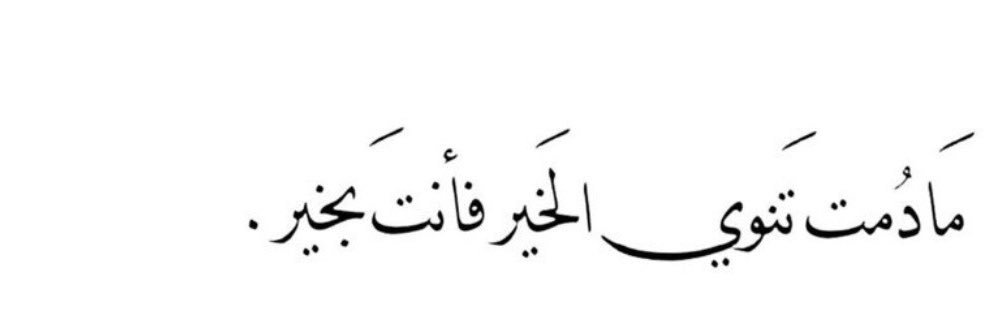 مَا دُمت تَنوي الخَير فأنتَ بخير .